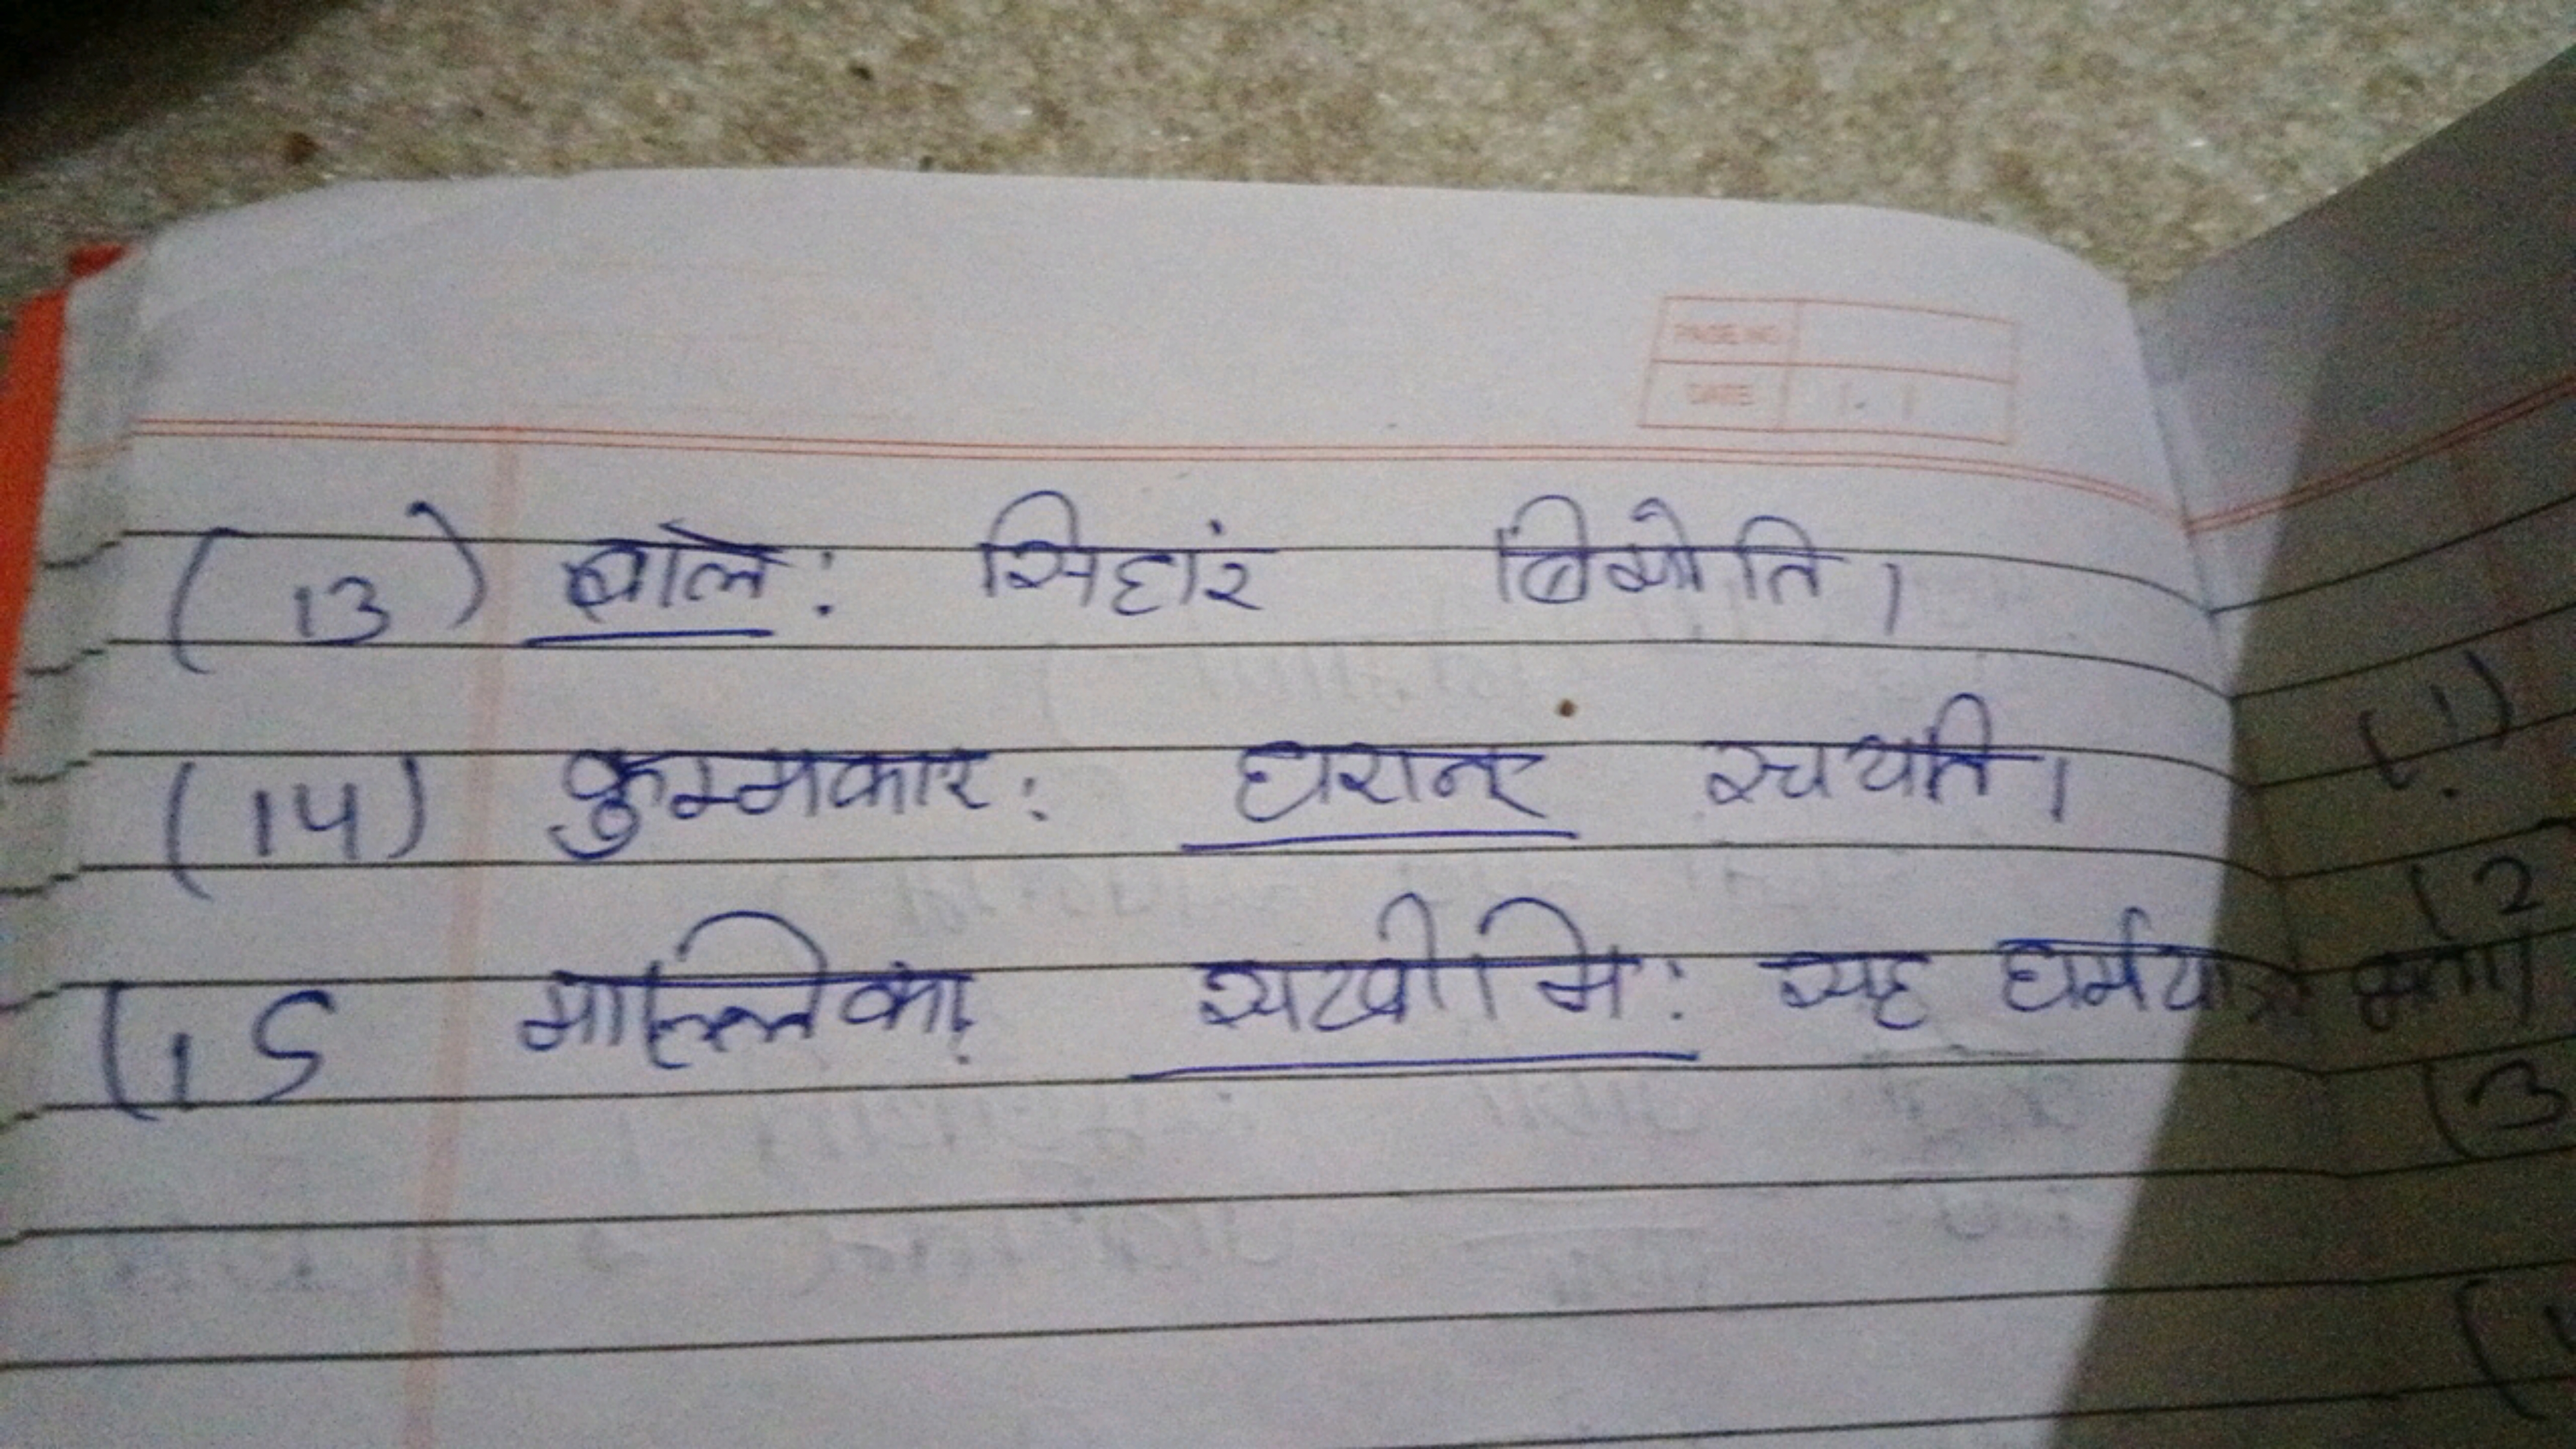 PAGE NO.
DATE
(13) बाले: सिहारं बिमोति।
(14) कुम्मकार: घरान् रचयति।
(15 माल्लिका सखीमि: सह धर्मयात्रा
(1)
(2
(3